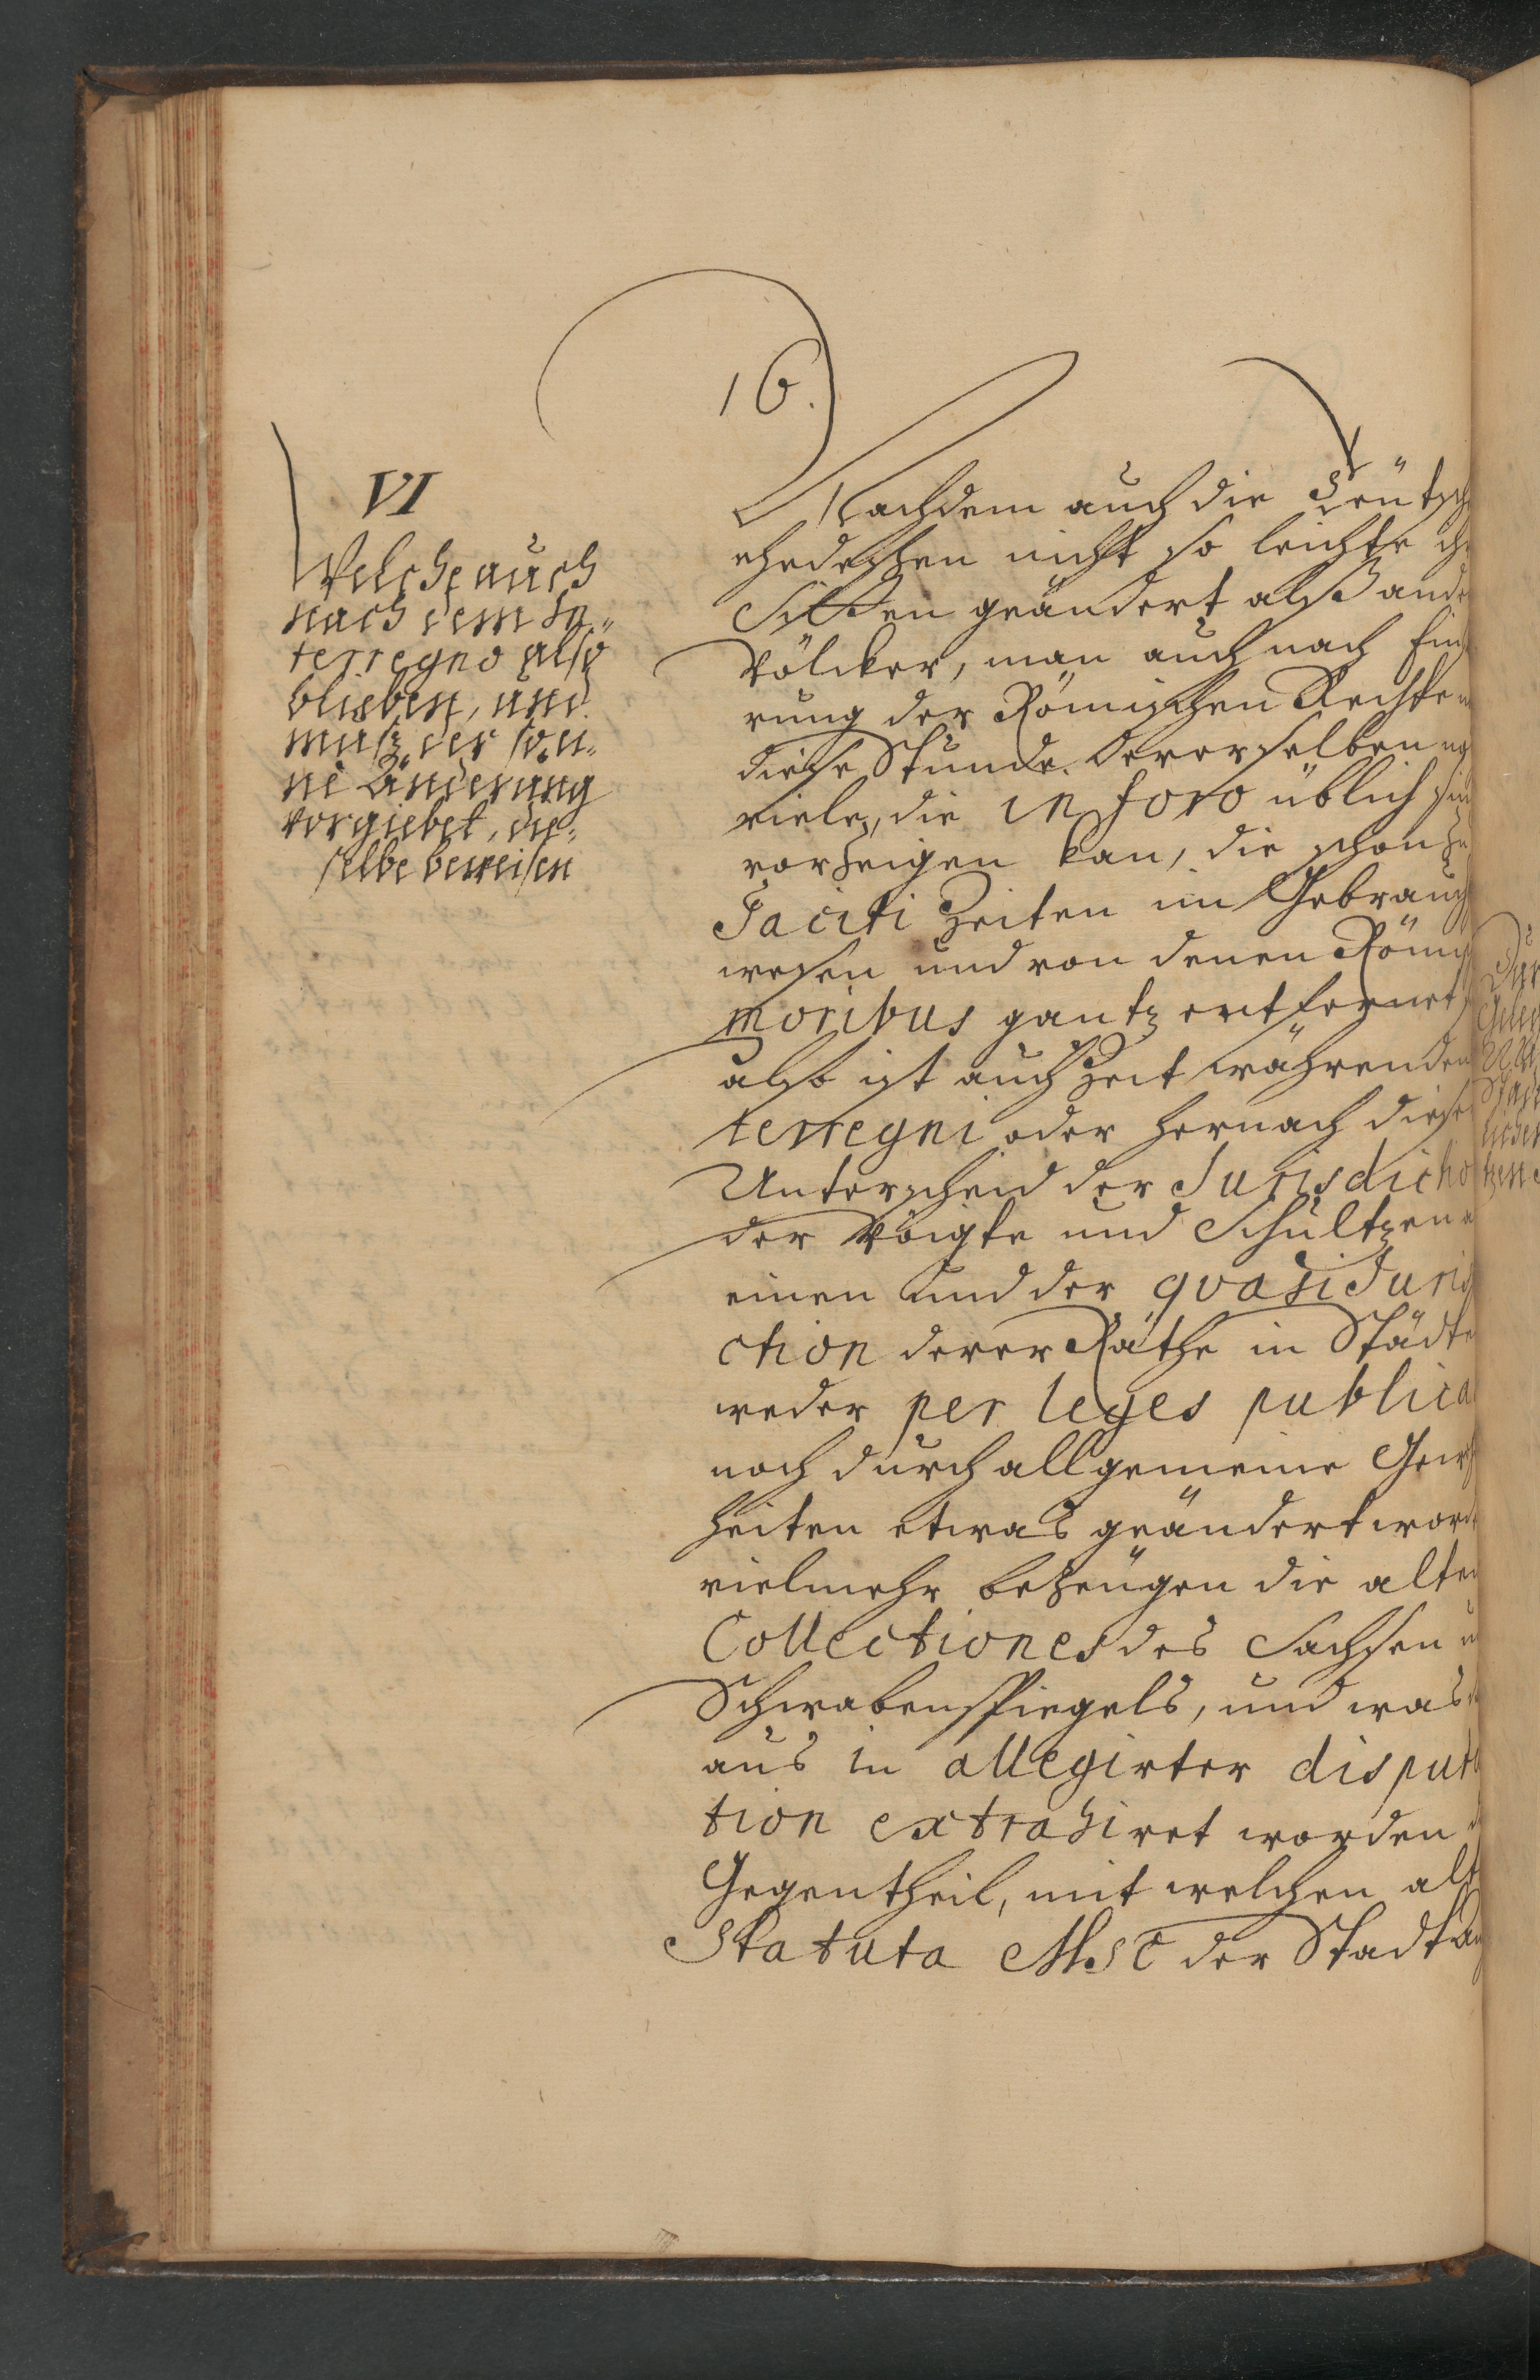 16.
VI
Welche auch
nach dem In-
terregno also
blieben, und
muß der so ei-
ne Änderung
vorgiebet, die-
selbe beweisen
Nachdem auch die Teutsch
ehedessen nicht so leichte ih
Sitten geändert alß ande
Völcker, man auch nach Einf
rung der Römischen Rechte
diese Stunde derer selben
viele, die in foro üblich sin
vorzeigen kan, die schon zu
Taciti Zeiten im Gebrauch
wesen und von denen Römi
moribus gantz entfernet,
also ist auch Zeit währenden
terregni oder hernach diese
Unterscheid der Jurisdictio
der Voigte und Schultzen
einen und der quasi Juris
ction derer Räthe in Städte
weder per leges publica
noch durch allgemeine Gew
heiten etwas geändert word
vielmehr bezeugen die alten
Collectiones des Sachsen u
Schwabenspiegels, und was
aus in allegirter disputa
tion extrahiret worden
Gegentheil, mit welchen alt
Statuta Msc der Stadt